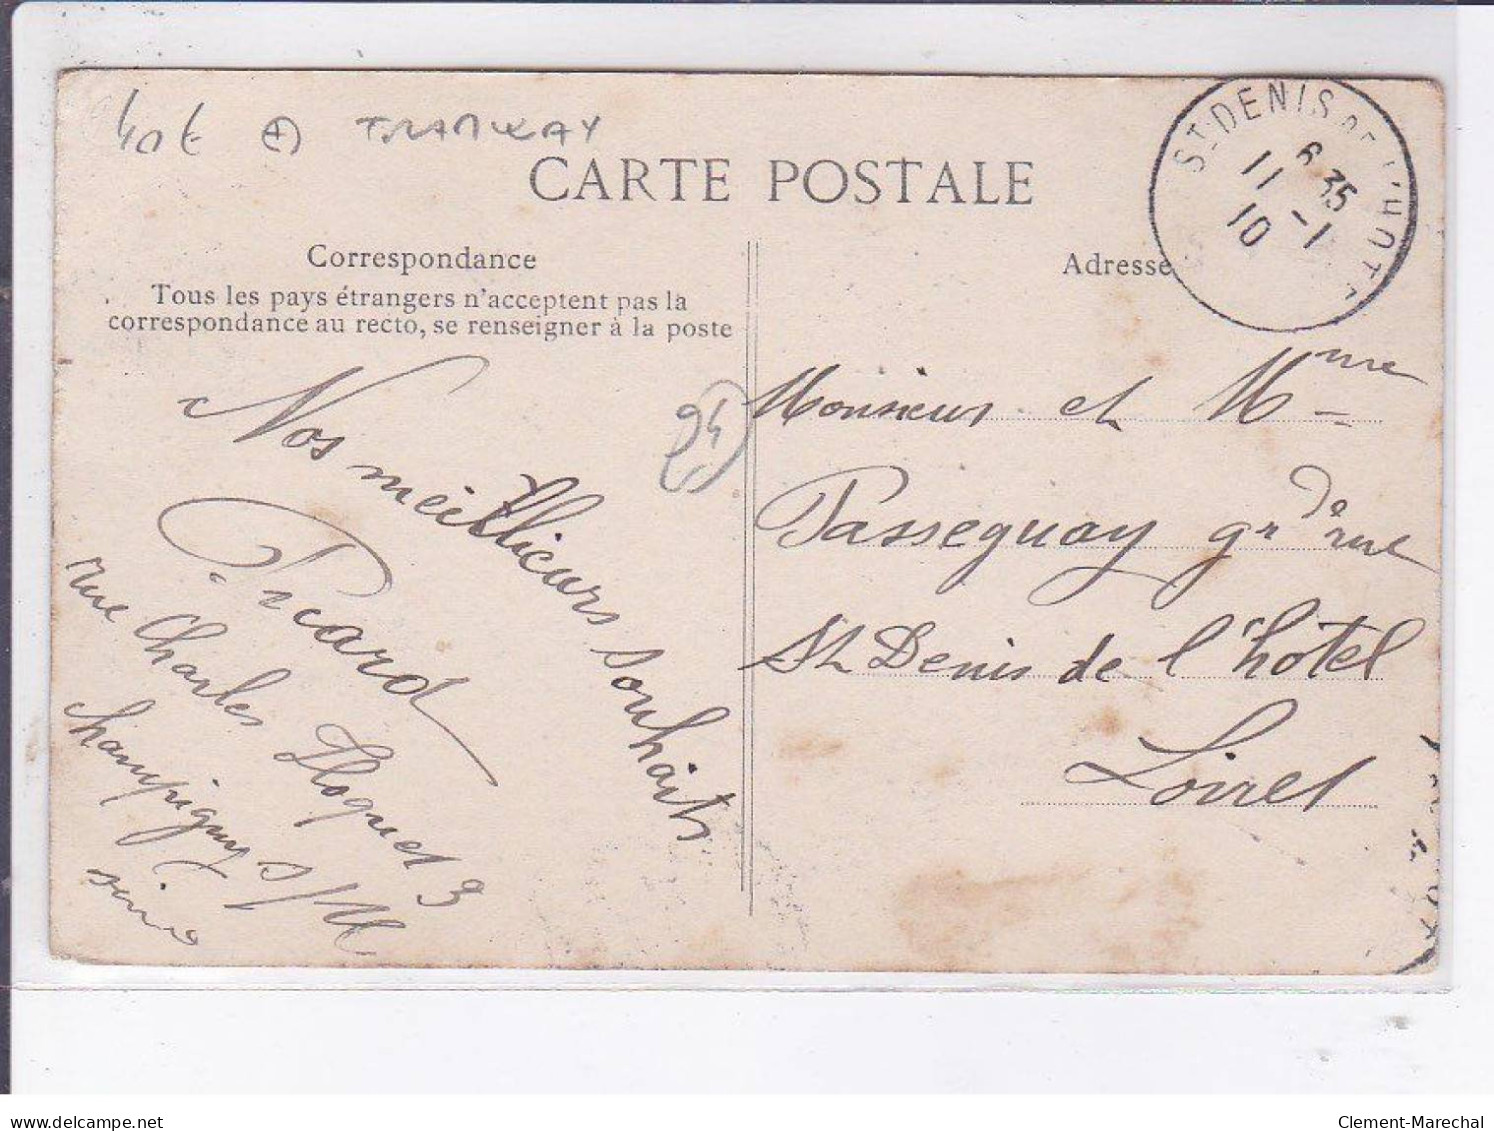 40€ TRAMWAY
CARTE POSTALE
Correspondance
Tous les pays étrangers n'acceptent pas la
correspondance au recto, se renseigner à la poste
Nos meilleurs souhaits
Picard
rue Charles Floquet 3
Champigny s/M
seine
94
Adresse
ST DENIS DE L'HOTEL
6 35
11 -1
10
Monsieur et Mme
Passeguay gde rue
St Denis de l'hôtel
Loiret
delcampe.net
Clement-Marechal